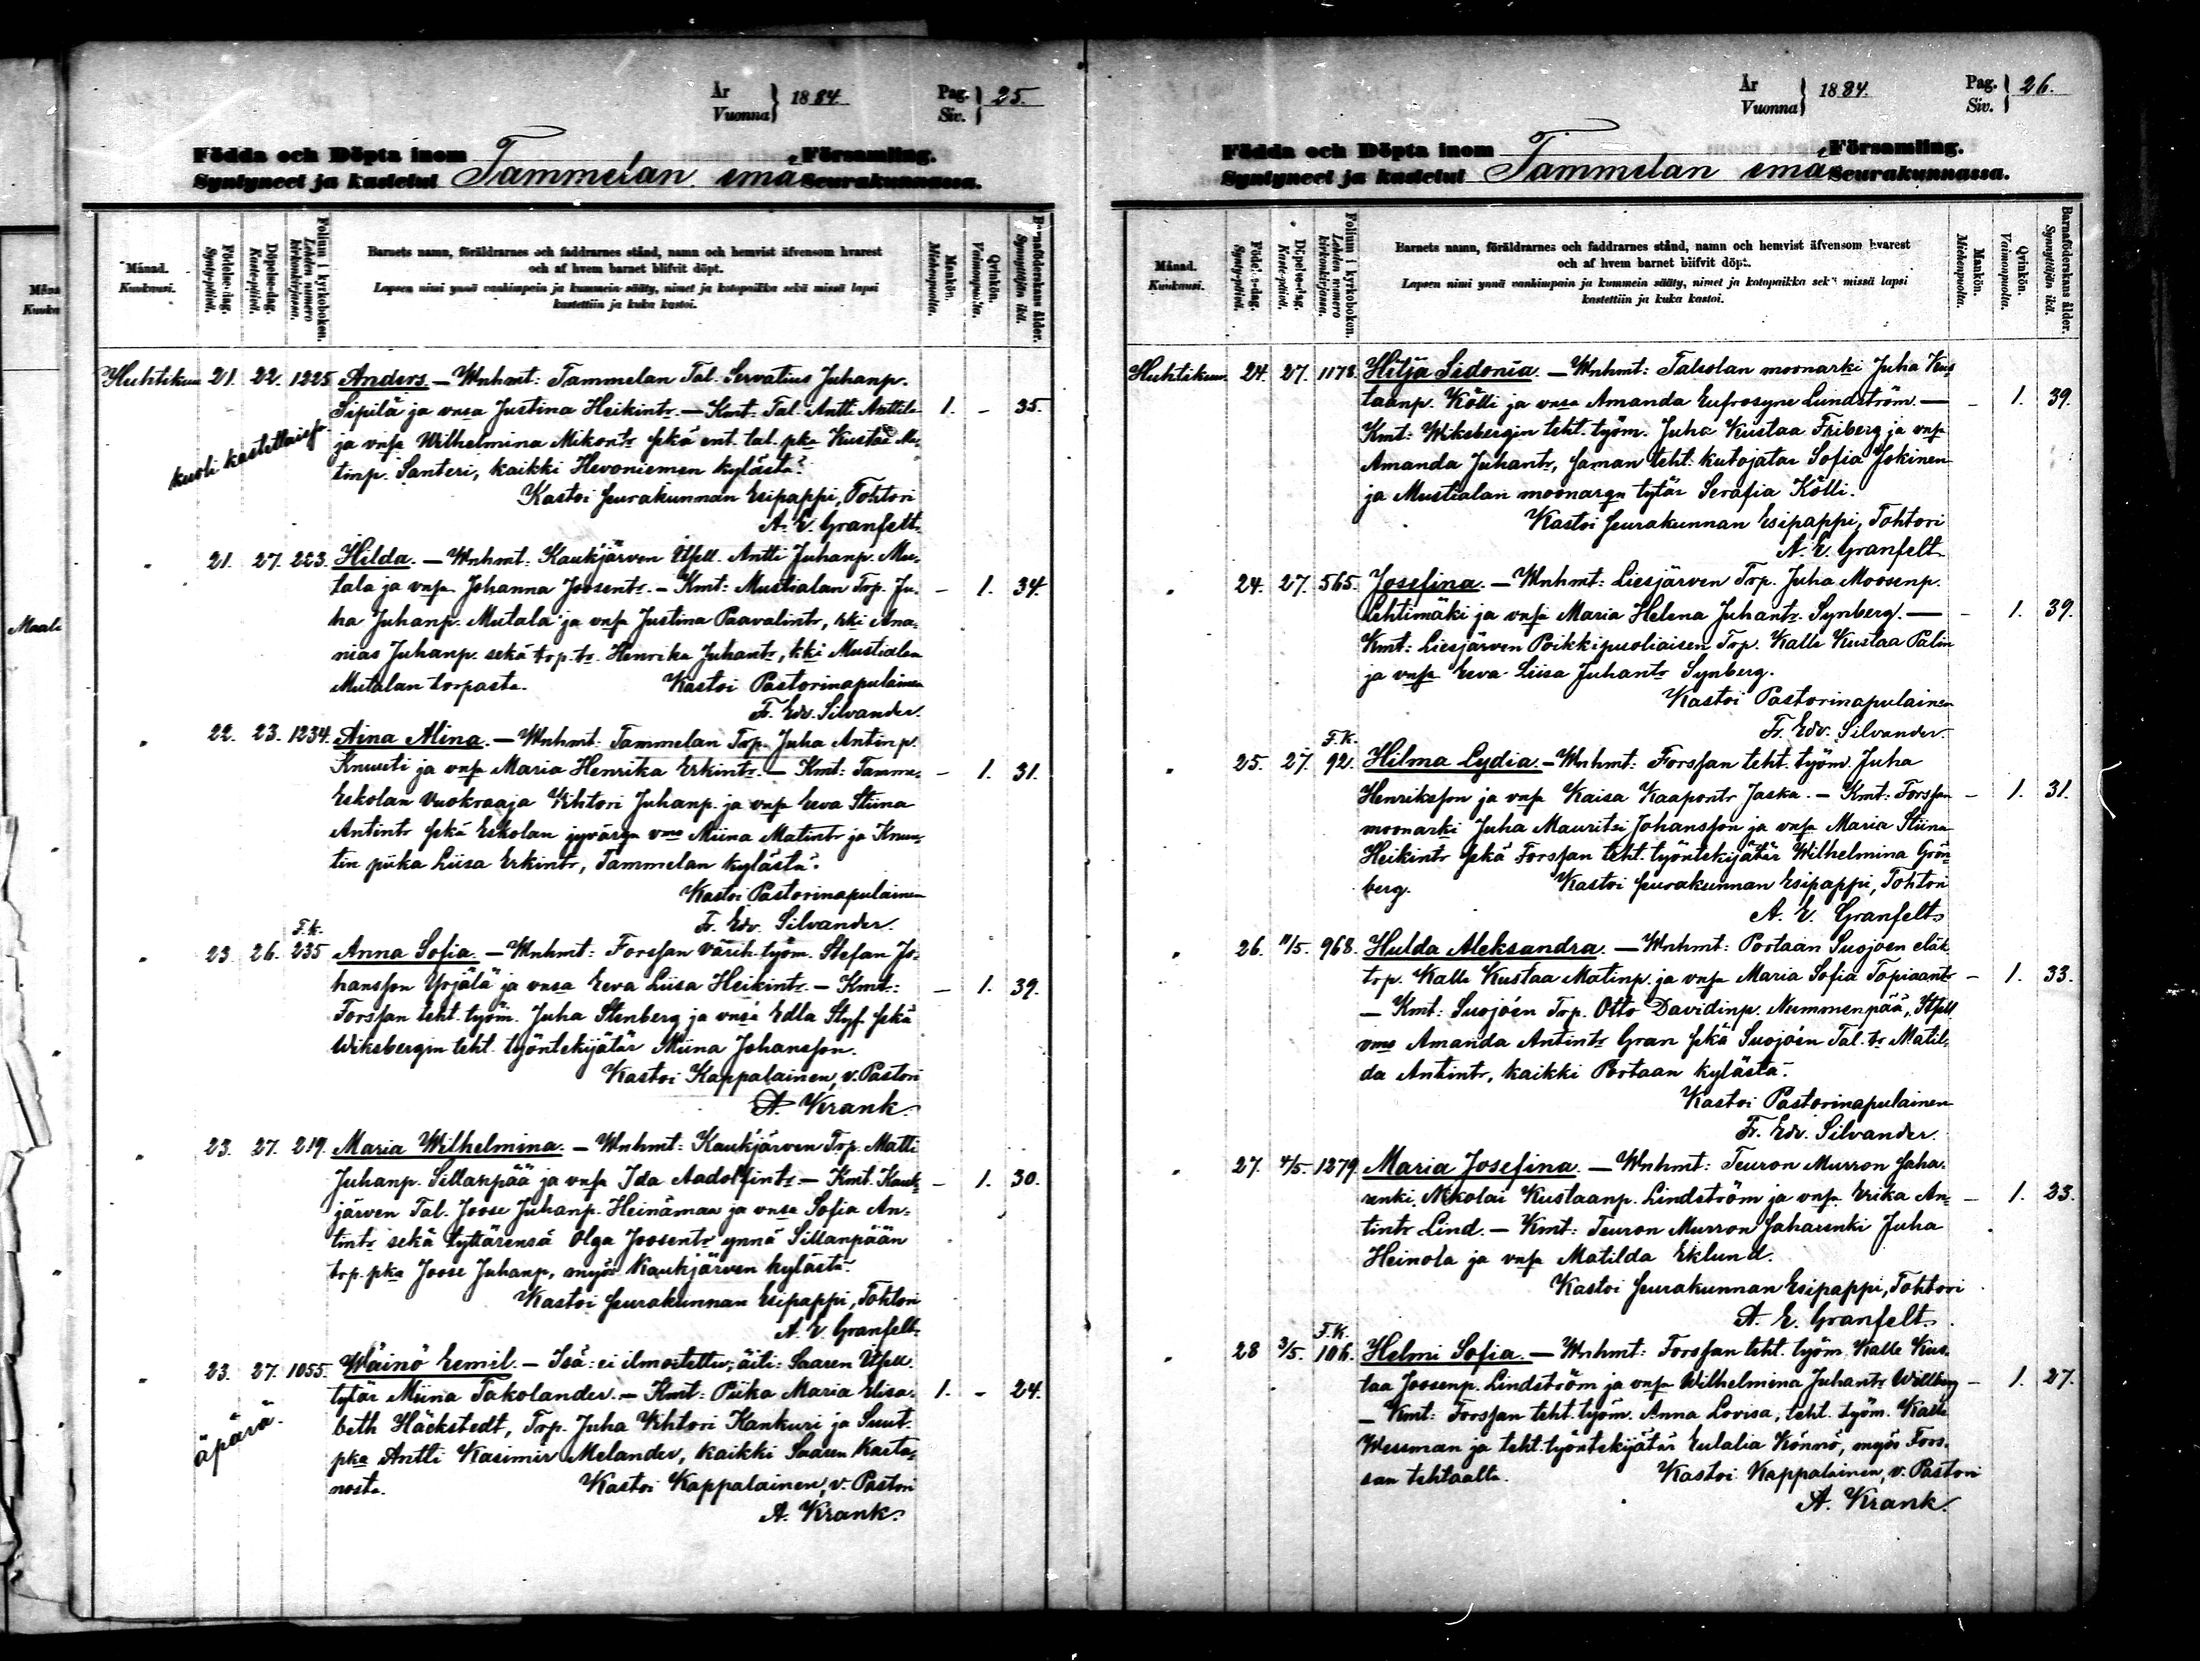 År
Vuonna } 1884.
Pag.
Siv. } 25.
Födda och Döpta inom Tammelan emä Församling.
Syntyneet ja kastetut Seurakunnassa.
Månad.
Kuukausi.
Födelse-dag.
Synty-päivä.
Döpelse-dag.
Kaste-päivä.
Folium i kyrkoboken.
Lehden numero kirkonkirjassa.
Barnets namn, föräldrarnes och faddrarnes stånd, namn och hemvist äfvensom hvarest
och af hvem barnet blifvit döpt.
Lapsen nimi ynnä vanhimpain ja kummein sääty, nimet ja kotopaikka sekä missä lapsi
kastettiin ja kuka kastoi.
Mankön.
Miehenpuolta.
Qvinkön.
Vaimonpuolta.
Barnaföderskans ålder.
Synnyttäjän ikä.
Huhtikuu 21. 22. 1225 Anders. — Wnhmt: Tammelan Tal. Servatius Juhanp.
Sipilä ja vnsa Justina Heikintr. — Kmt. Tal. Antti Anttila 1. - 35.
kuoli kastettaissa ja vnsa Wilhelmina Mikontr sekä ent. tal. pka Kustaa Ma-
tinp. Santeri, kaikki Hevoniemen kylästä.
Kastoi seurakunnan Esipappi, Tohtori
A. E. Granfelt.
" 21. 27. 223. Hilda. — Wnhmt: Kaukjärven Itsell. Antti Juhanp. Mu-
tala ja vnsa Johanna Joosentr. — Kmt: Mustialan Trp. Ju- - 1. 34.
ha Juhanp. Mutala ja vnsa Justina Paavalintr, Rki Ana-
nias Juhanp. sekä trp. tr. Henrika Juhantr, kki Mustialan
Mutalan torpasta. Kastoi Pastorinapulainen
Fr. Edv. Silvander.
" 22. 23. 1234. Aina Alina. — Wnhmt: Tammelan Trp. Juha Antinp.
Knuuti ja vnsa Maria Henrika Erkintr. — Kmt: Tamme- - 1. 31.
Eskolan Vuokraaja Vihtori Juhanp. ja vnsa Eeva Stiina
Antintr sekä Eskolan jyvärya vmo Miina Matintr ja Knuu-
tin piika Liisa Erkintr, Tammelan kylästä.
Kastoi Pastorinapulainen
Fr. Edv. Silvander.
F.K.
" 23. 26. 235 Anna Sofia. — Wnhmt: Forssan värih. työm. Stefan Jo-
hansson Yrjälä ja vnsa Eeva Liisa Heikintr. — Kmt: - 1. 39.
Forssan teht. työm. Juha Stenberg ja vnsa Edla Styf sekä
Wiksbergin teht. työntekijätär Miina Johansson.
Kastoi Kappalainen, v. Pastori
A. Krank.
" 23. 27. 219. Maria Wilhelmina. — Wnhmt: Kaukjärven Trp. Matti
Juhanp. Sillanpää ja vnsa Ida Aadolfintr. — Kmt. Kauk- - 1. 30.
järven Tal. Joose Juhanp. Heinämaa ja vnsa Sofia An-
tintr sekä tyttärensä Olga Joosentr ynnä Sillanpään
trp. pka Joose Juhanp, myös Kaukjärven kylästä.
Kastoi seurakunnan Esipappi, Tohtori
A. E. Granfelt.
" 23. 27. 1055. Wäinö Eemil. — Isä: ei ilmoitettu; äiti: Saaren Itsell.
tytär Miina Takolander. — Kmt: Piika Maria Elisa- 1. - 24.
äpärä. beth Häckstedt, Trp. Juha Vihtori Kankuri ja Suut.
pka Antti Kasimir Melander, kaikki Saaren Karta-
nosta. Kastoi Kappalainen, v. Pastori
A. Krank.
År
Vuonna } 1884.
Pag.
Siv. } 26.
Födda och Döpta inom Tammelan emä Församling.
Syntyneet ja kastetut Seurakunnassa.
Månad.
Kuukausi.
Födelse-dag.
Synty-päivä.
Döpelse-dag.
Kaste-päivä.
Folium i kyrkoboken.
Lehden numero kirkonkirjassa.
Barnets namn, föräldrarnes och faddrarnes stånd, namn och hemvist äfvensom hvarest
och af hvem barnet blifvit döpt.
Lapsen nimi ynnä vanhimpain ja kummein sääty, nimet ja kotopaikka sekä missä lapsi
kastettiin ja kuka kastoi.
Mankön.
Miehenpuolta.
Qvinkön.
Vaimonpuolta.
Barnaföderskans ålder.
Synnyttäjän ikä.
Huhtikuu. 24. 27. 1178. Hilja Sidonia. — Wnhmt: Talsolan moonarki Juha Kus-
taanp. Kölli ja vnsa Amanda Eufrosyne Lundström. — - 1. 39.
Kmt: Wiksbergin teht. työm. Juha Kustaa Friberg ja vnsa
Amanda Juhantr, saman teht. kutojatar Sofia Jokinen
ja Mustialan moonargn tytär Serafia Kölli.
Kastoi seurakunnan Esipappi, Tohtori
A. E. Granfelt
" 24. 27. 565. Josefina. — Wnhmt: Liesjärven Trp. Juha Moosenp.
Lehtimäki ja vnsa Maria Helena Juhantr. Synberg. — - 1. 39.
Kmt: Liesjärven Poikkipuoliaisen Trp. Kalle Kustaa Palin
ja vnsa Eeva Liisa Juhantr Synberg.
Kastoi Pastorinapulainen
Fr. Edv. Silvander.
F.K.
" 25. 27. 92. Hilma Lydia. — Wnhmt: Forssan teht. työm. Juha
Henriksson ja vnsa Kaisa Kaapontr Jaska. — Kmt: Forssan - 1. 31.
moonarki Juha Mauritsi Johansson ja vnsa Maria Stiina
Heikintr sekä Forssan teht. työntekijätär Wilhelmina Grön-
berg. Kastoi seurakunnan Esipappi, Tohtori
A. E. Granfelt.
" 26. 11/5. 968. Hulda Aleksandra. — Wnhmt: Portaan Suojoen eläk.
trp. Kalle Kustaa Matinp. ja vnsa Maria Sofia Topiaantr - 1. 33.
— Kmt: Suojoen Trp. Otto Davidinp. Nummenpää, Itsell.
vmo Amanda Antintr Gran sekä Suojoen Tal. tr Matil-
da Antintr, kaikki Portaan kylästä.
Kastoi Pastorinapulainen
Fr. Edv. Silvander.
" 27. 4/5. 1279. Maria Josefina. — Wnhmt: Teuron Murron saha-
renki Nikolai Kustaanp. Lindström ja vnsa Erika An- - 1. 33.
tintr Lind. — Kmt: Teuron Murron saharenki Juha
Heinola ja vnsa Matilda Eklund.
Kastoi seurakunnan Esipappi, Tohtori
A. E. Granfelt.
F.K.
" 28 3/5. 106. Helmi Sofia. — Wnhmt: Forssan teht. työm. Kalle Kus-
taa Joosenp. Lindström ja vnsa Wilhelmina Juhantr Willberg - 1. 27.
— Kmt: Forssan teht. työm. Anna Lovisa, teht. työm. Kalle
Wessman ja teht. työntekijätär Eulalia Könnö, myös Fors-
san tehtaalta. Kastoi Kappalainen, v. Pastori
A. Krank.